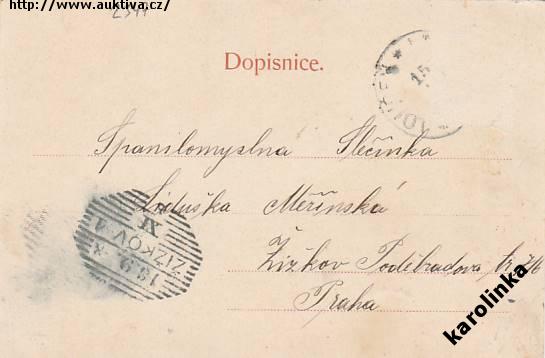 http://www.auktiva.cz/
Dopisnice.
15
Spanilomyslna Slečinka
Liduška Měřínská
Žižkov Poděbradova tr. 76
Praha
ŽIŽKOV 1
XI
karolinka